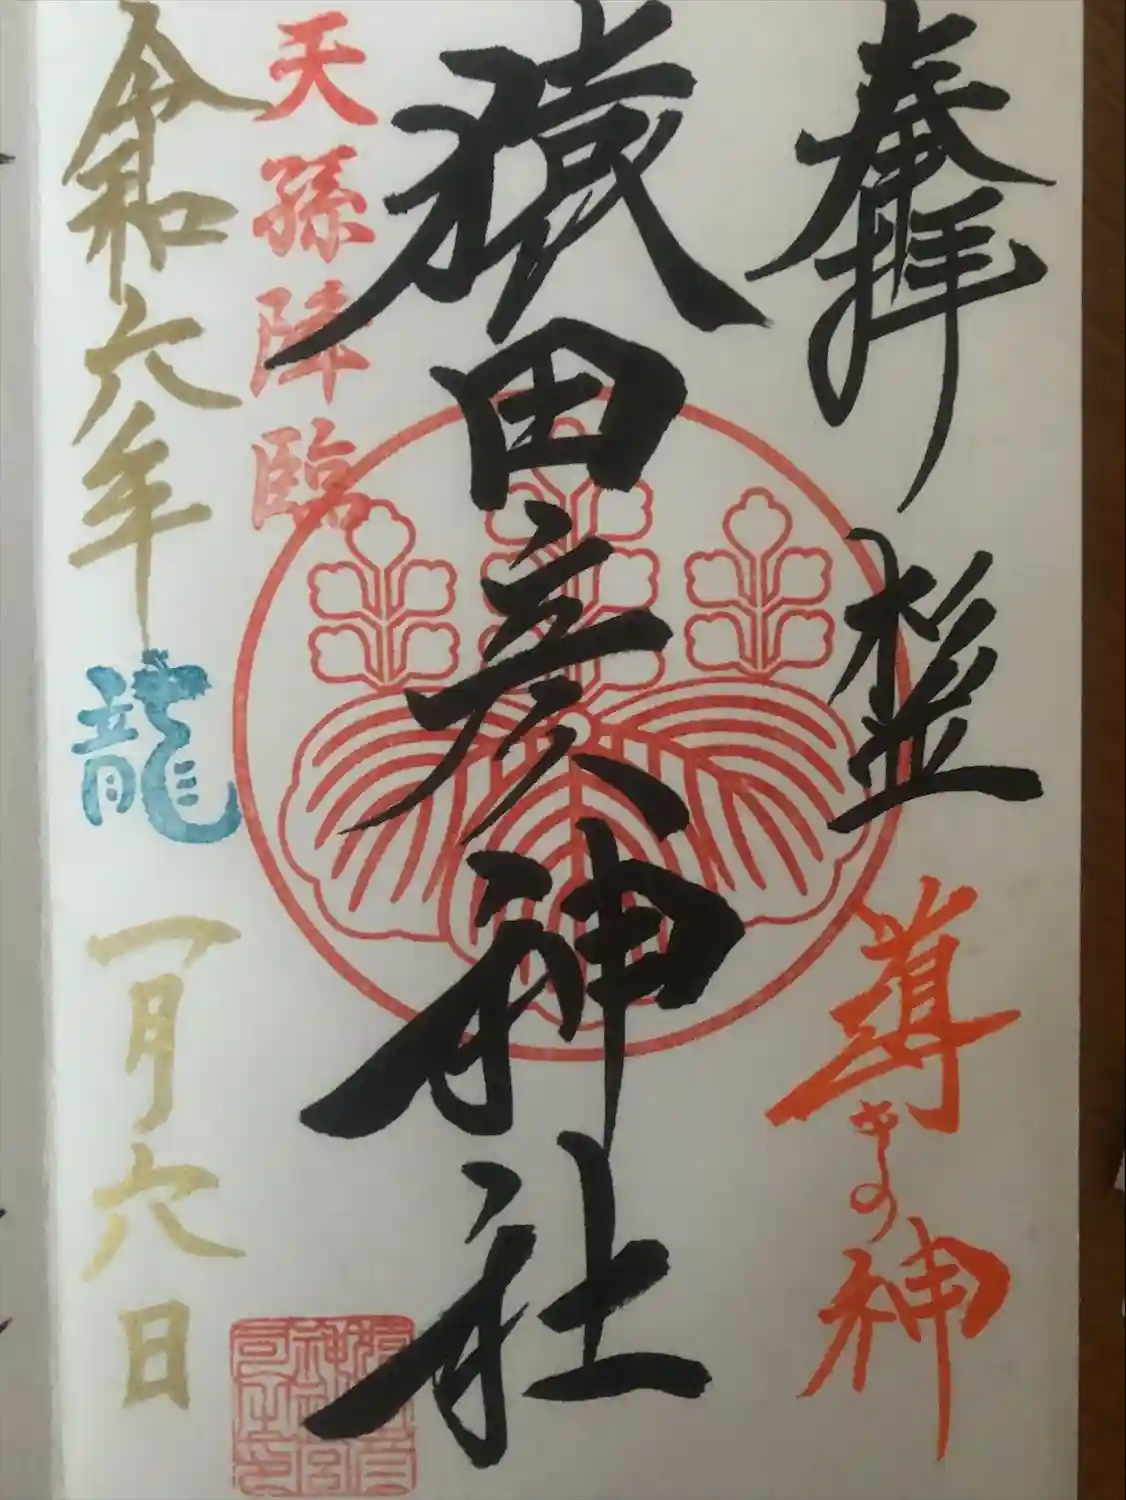 奉拝
杉並
導きの神
猿田彦神社
天孫降臨
令和六年 龍 一月六日